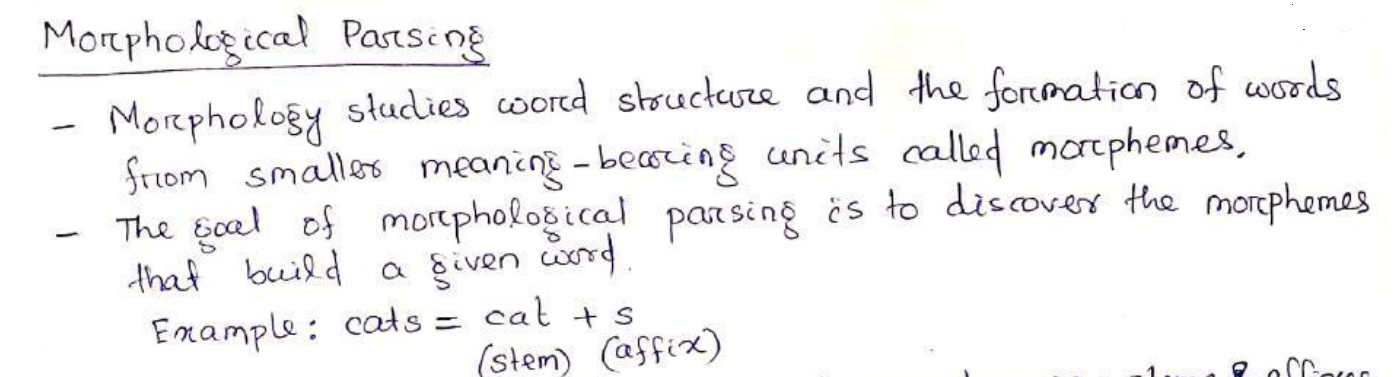 Morphological Parsing
- Morphology studies word structure and the formation of words
from smaller meaning-bearing units called morphemes.
- The goal of morphological parsing is to discover the morphemes
that build a given word.
Example: cats = cat + s
(stem) (affix)
& affixes